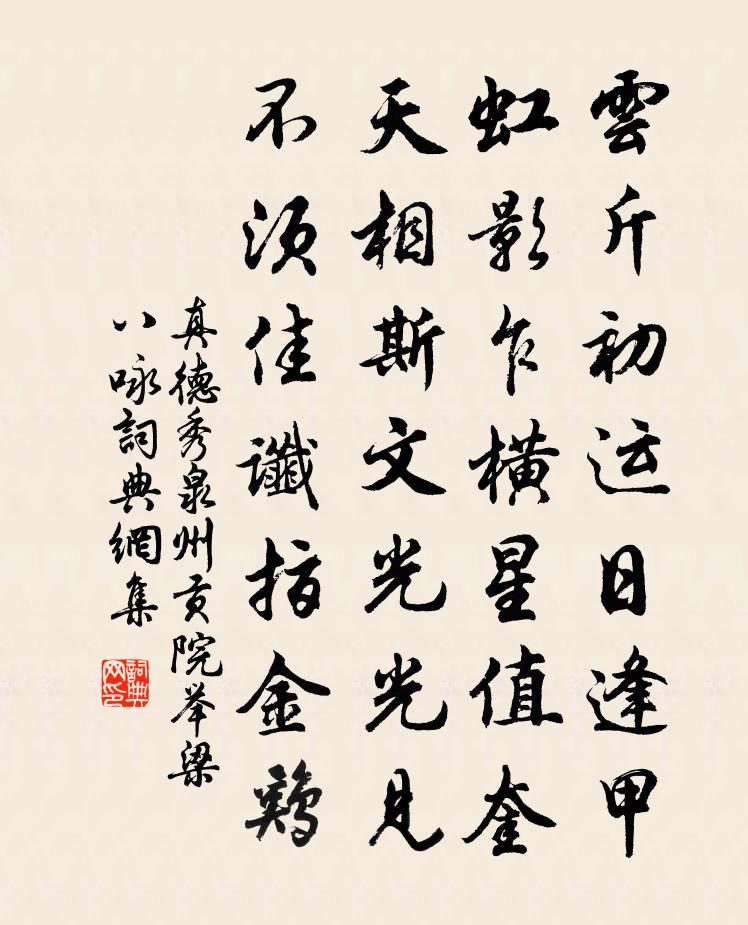 雲斤初运日逢甲
虹影乍橫星值奎
天相斯文光光見
不须佳讖指金鷄
真德秀泉州贡院举梁
八咏詞典網集
詞典网印